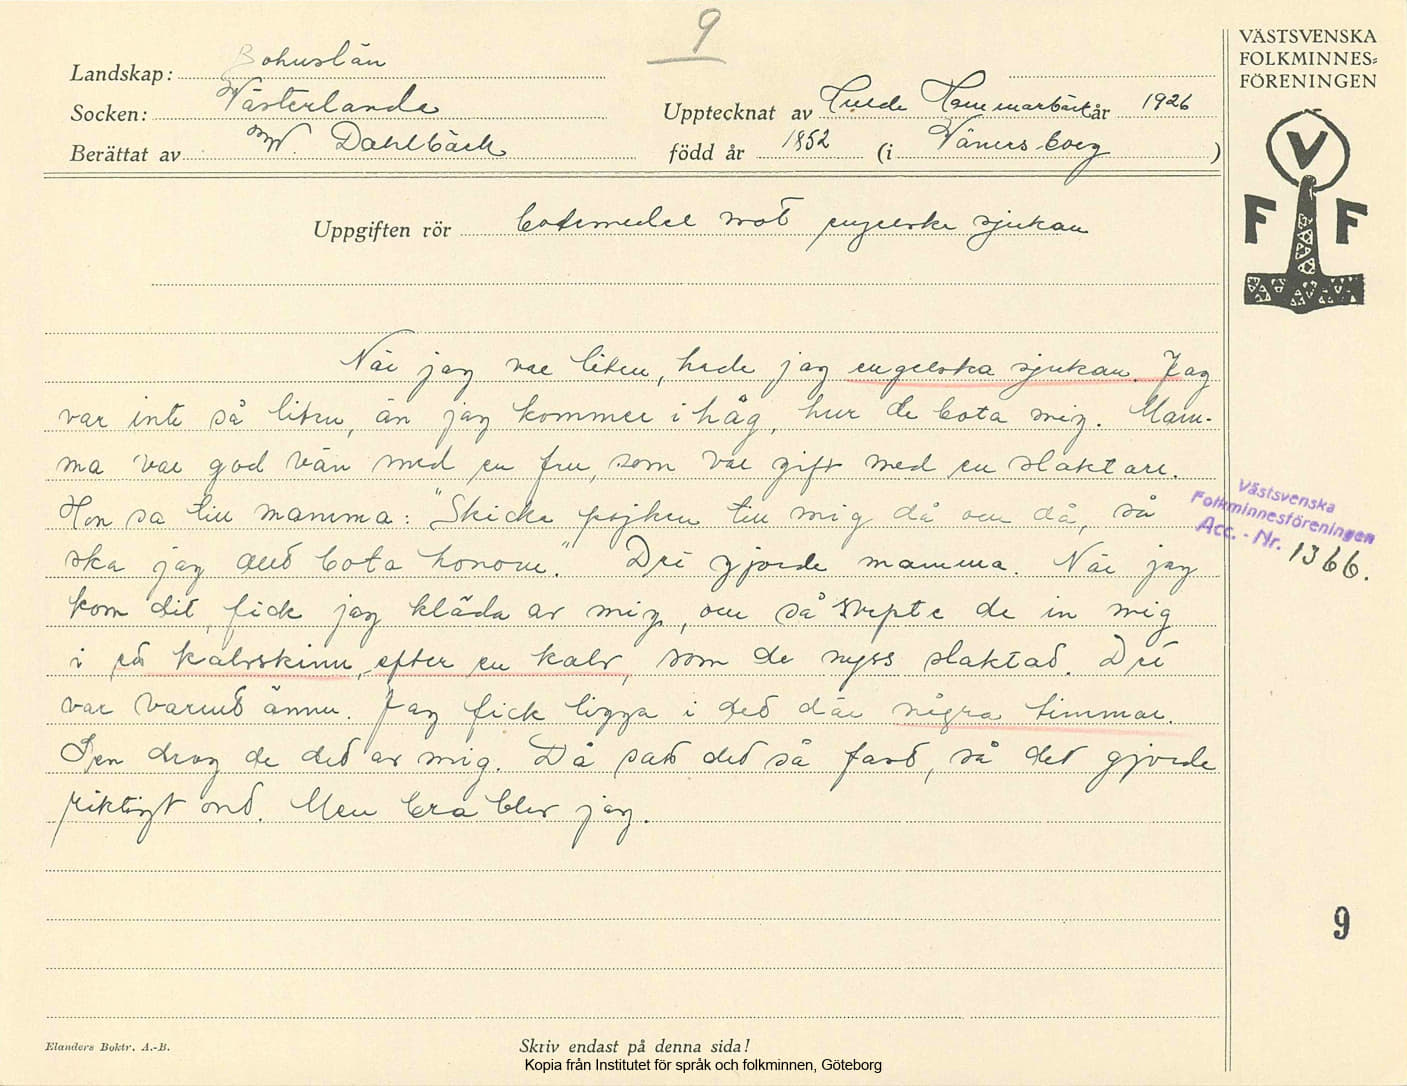 9
VÄSTSVENSKA
FOLKMINNES=
FÖRENINGEN
V
F F
Landskap: Bohuslän
Socken: Västerlanda
Upptecknat av Hulda Hammarbäck år 1926
Berättat av W. Dahlbäck
född år 1852 (i Vänersborg)
Uppgiften rör botemedel mot engelska sjukan
När jag var liten, hade jag engelska sjukan. Jag
var inte så liten, än jag kommer ihåg, hur de bota mig. Mam-
ma var god vän med en fru, som var gift med en slaktare.
Hon sa till mamma: "Skicka pojken till mig då och då, så
ska jag allt bota honom." Det gjorde mamma. När jag
kom dit, fick jag kläda av mig, och så svepte de in mig
i ett kalvskinn, efter en kalv, som de nyss slaktat. Det
var varmt ännu. Jag fick ligga i det där några timmar.
Sen drog de det av mig. Då satt det så fast, så det gjorde
riktigt ont. Men bra blev jag.
Västsvenska
Folkminnesföreningen
Acc. - Nr. 1366.
9
Elanders Boktr. A.-B.
Skriv endast på denna sida!
Kopia från Institutet för språk och folkminnen, Göteborg